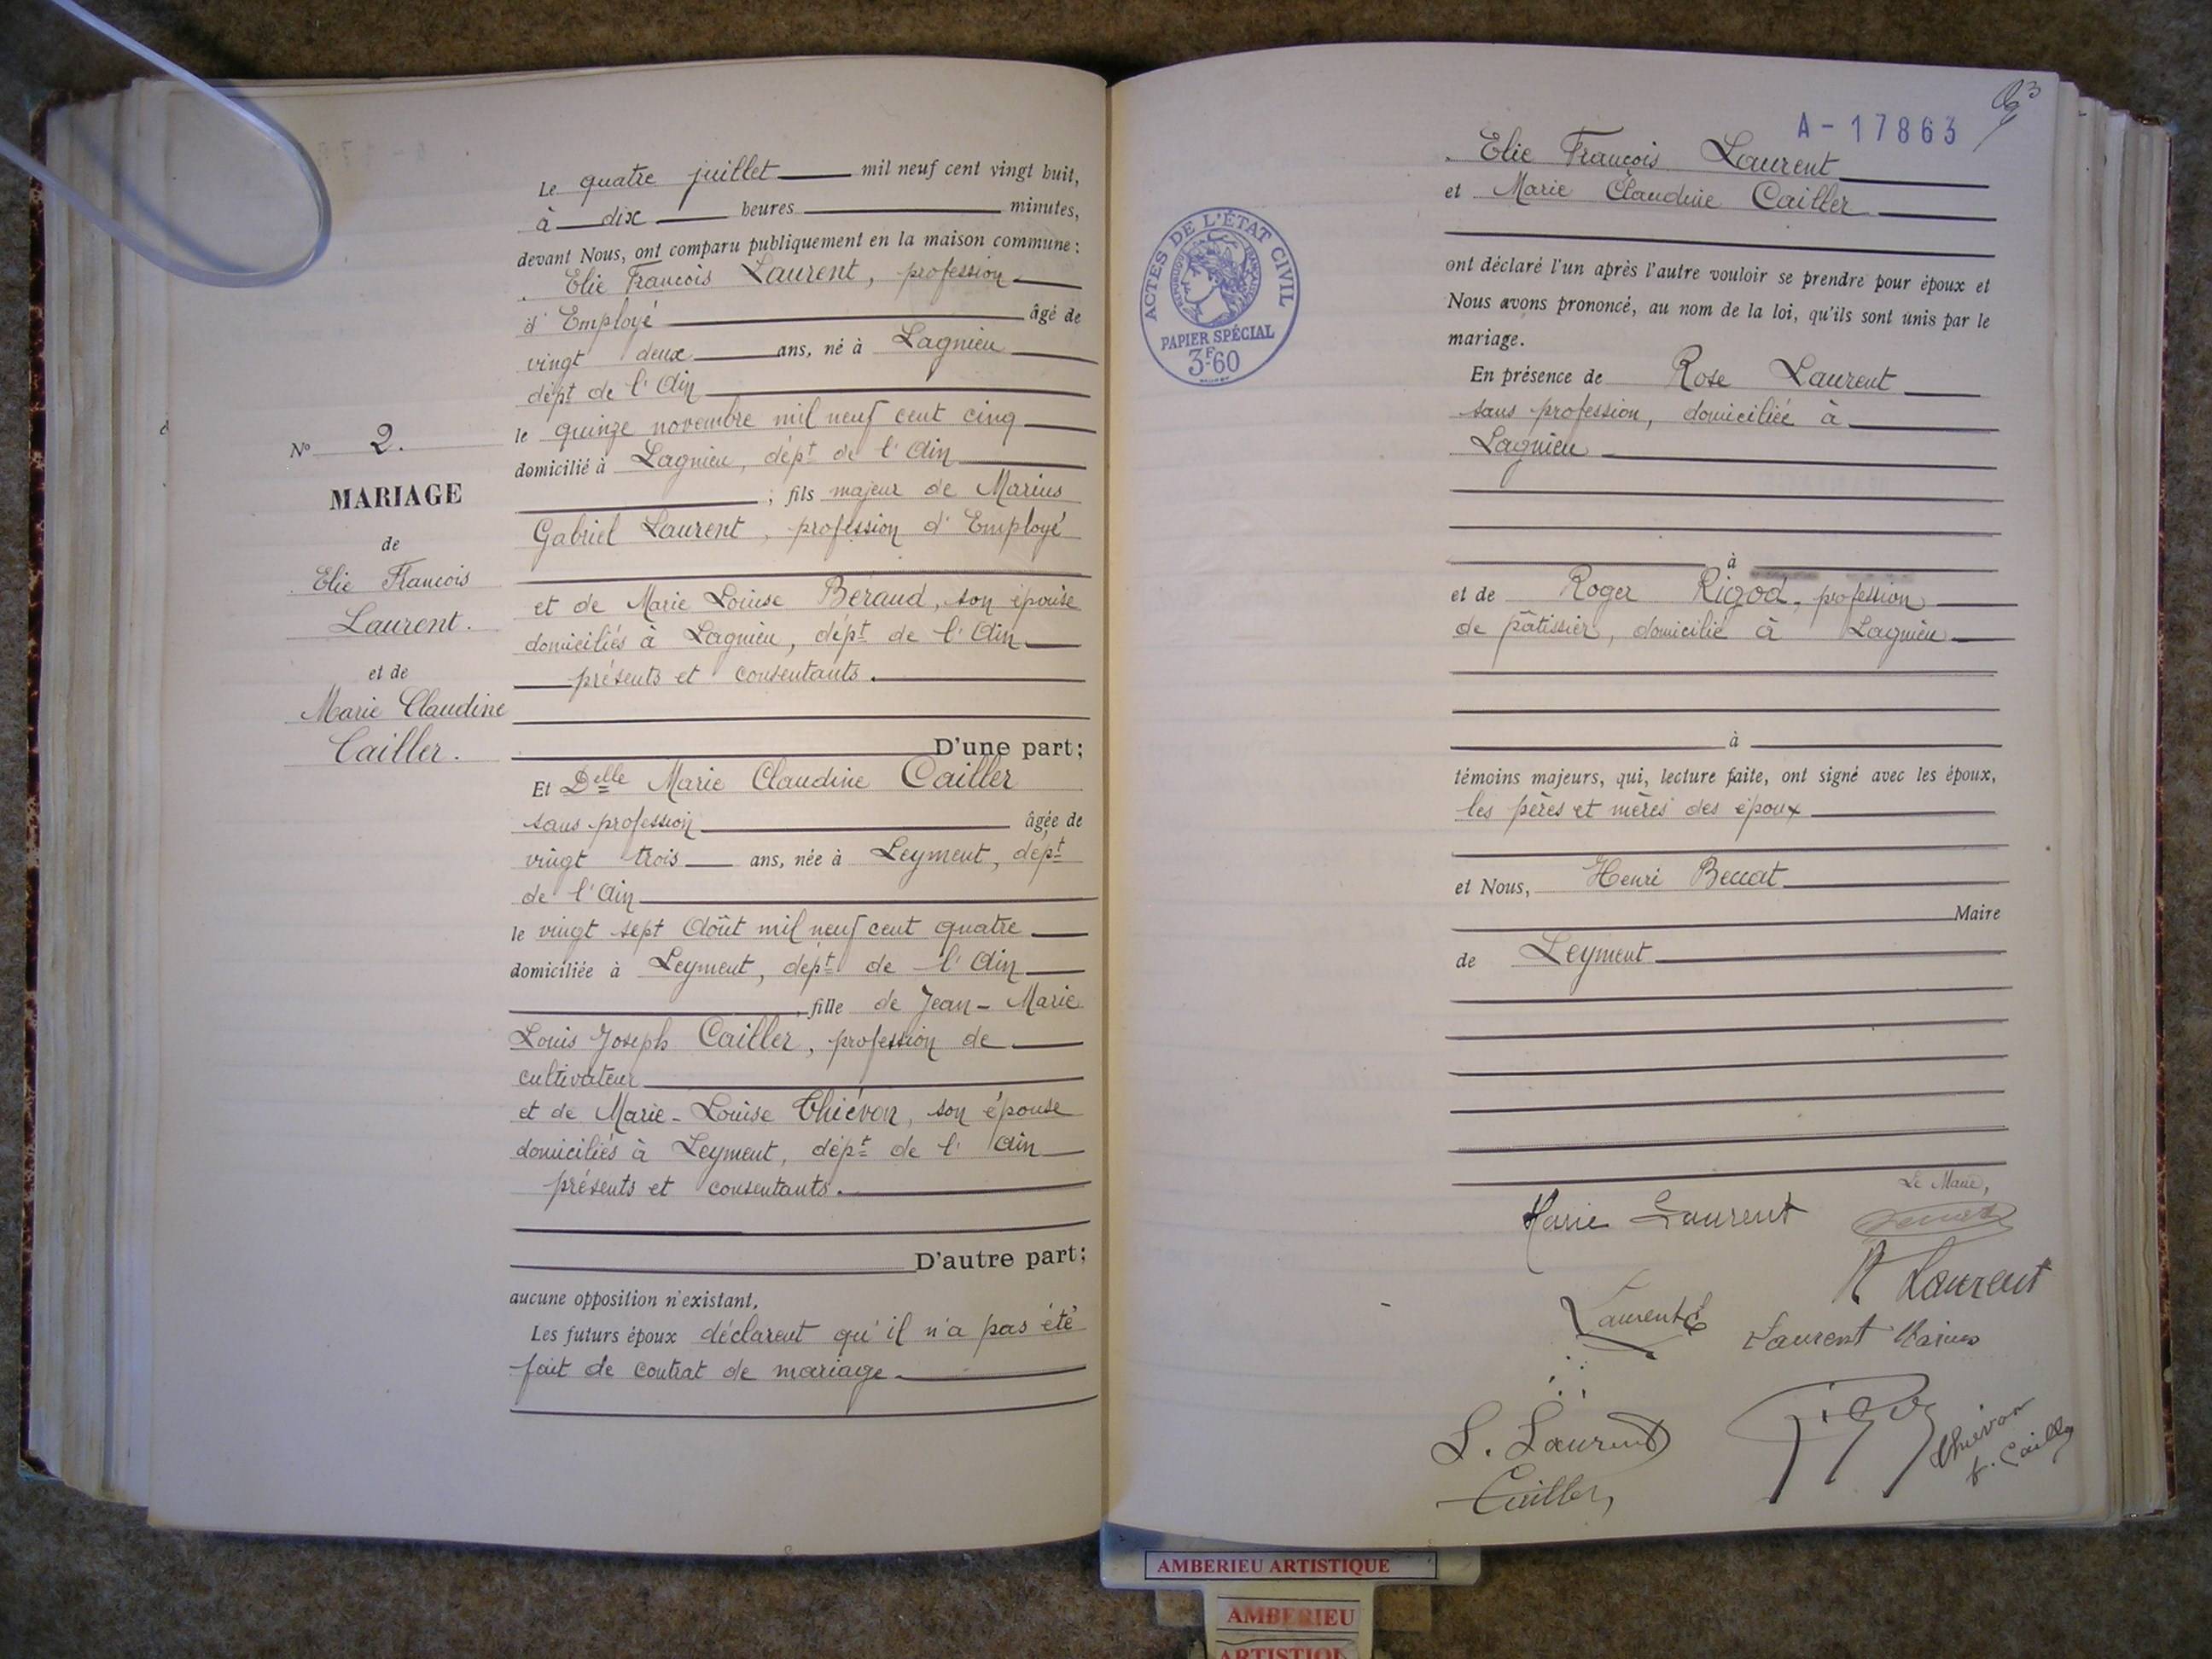 Nº 2.
MARIAGE
de
Elie François
Laurent.
et de
Marie Claudine
Cailler.
Le quatre juillet mil neuf cent vingt huit,
à dix heures minutes,
devant Nous, ont comparu publiquement en la maison commune :
Elie François Laurent, profession
d'Employé âgé de
vingt deux ans, né à Lagnieu
dépt de l'Ain
le quinze novembre mil neuf cent cinq
domicilié à Lagnieu, dépt de l'Ain
; fils majeur de Marius
Gabriel Laurent, profession d'Employé
et de Marie Louise Béraud, son épouse
domiciliés à Lagnieu, dépt de l'Ain
présents et consentants.
D'une part;
Et Delle Marie Claudine Cailler
sans profession âgée de
vingt trois ans, née à Leyment, dépt
de l'Ain
le vingt sept Août mil neuf cent quatre
domiciliée à Leyment, dépt de l'Ain
, fille de Jean-Marie
Louis Joseph Cailler, profession de
cultivateur
et de Marie-Louise Thiévon, son épouse
domiciliés à Leyment, dépt de l'Ain
présents et consentants.
D'autre part;
aucune opposition n'existant,
Les futurs époux déclarent qu'il n'a pas été
fait de contrat de mariage.
A-17863
ACTES DE L'ÉTAT CIVIL
RÉPUBLIQUE FRANÇAISE
PAPIER SPÉCIAL
3F60
Elie François Laurent
et Marie Claudine Cailler
ont déclaré l'un après l'autre vouloir se prendre pour époux et
Nous avons prononcé, au nom de la loi, qu'ils sont unis par le
mariage.
En présence de Rose Laurent
sans profession, domiciliée à
Lagnieu
à
et de Roger Rigod, profession
de pâtissier, domicilié à Lagnieu
à
témoins majeurs, qui, lecture faite, ont signé avec les époux,
les pères et mères des époux
et Nous, Henri Beccat
Maire
de Leyment
Le Maire,
Marie Laurent
R Laurent
Laurent E
Laurent Marius
L. Laurent
Cailler
Thiévon
f. Cailler
AMBERIEU ARTISTIQUE
AMBERIEU
ARTISTIQUE